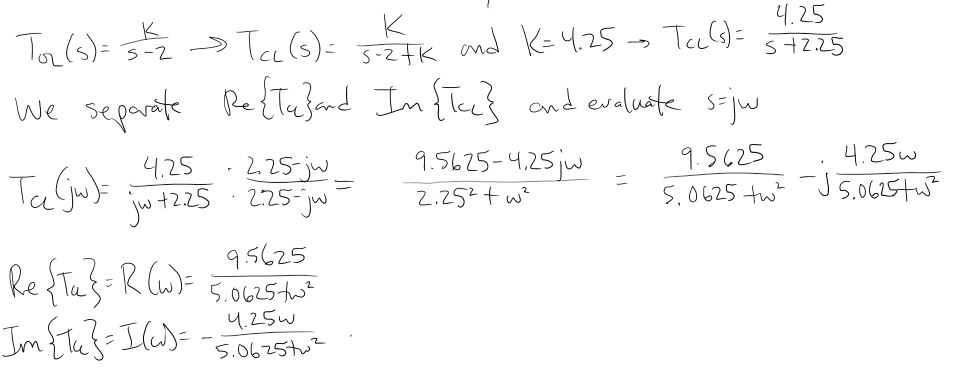 T_OL(s) = K/(s-2) → T_CL(s) = K/(s-2+K) and K = 4.25 → T_CL(s) = 4.25/(s+2.25)
We separate Re{T_CL} and Im{T_CL} and evaluate s=jw
T_CL(jw) = 4.25/(jw+2.25) · (2.25-jw)/(2.25-jw) = (9.5625-4.25jw)/(2.25²+w²) = 9.5625/(5.0625+w²) - j 4.25w/(5.0625+w²)
Re{T_CL} = R(w) = 9.5625/(5.0625+w²)
Im{T_CL} = I(w) = - 4.25w/(5.0625+w²)